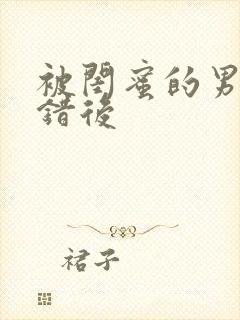 被閨蜜的男
錯後
裙子